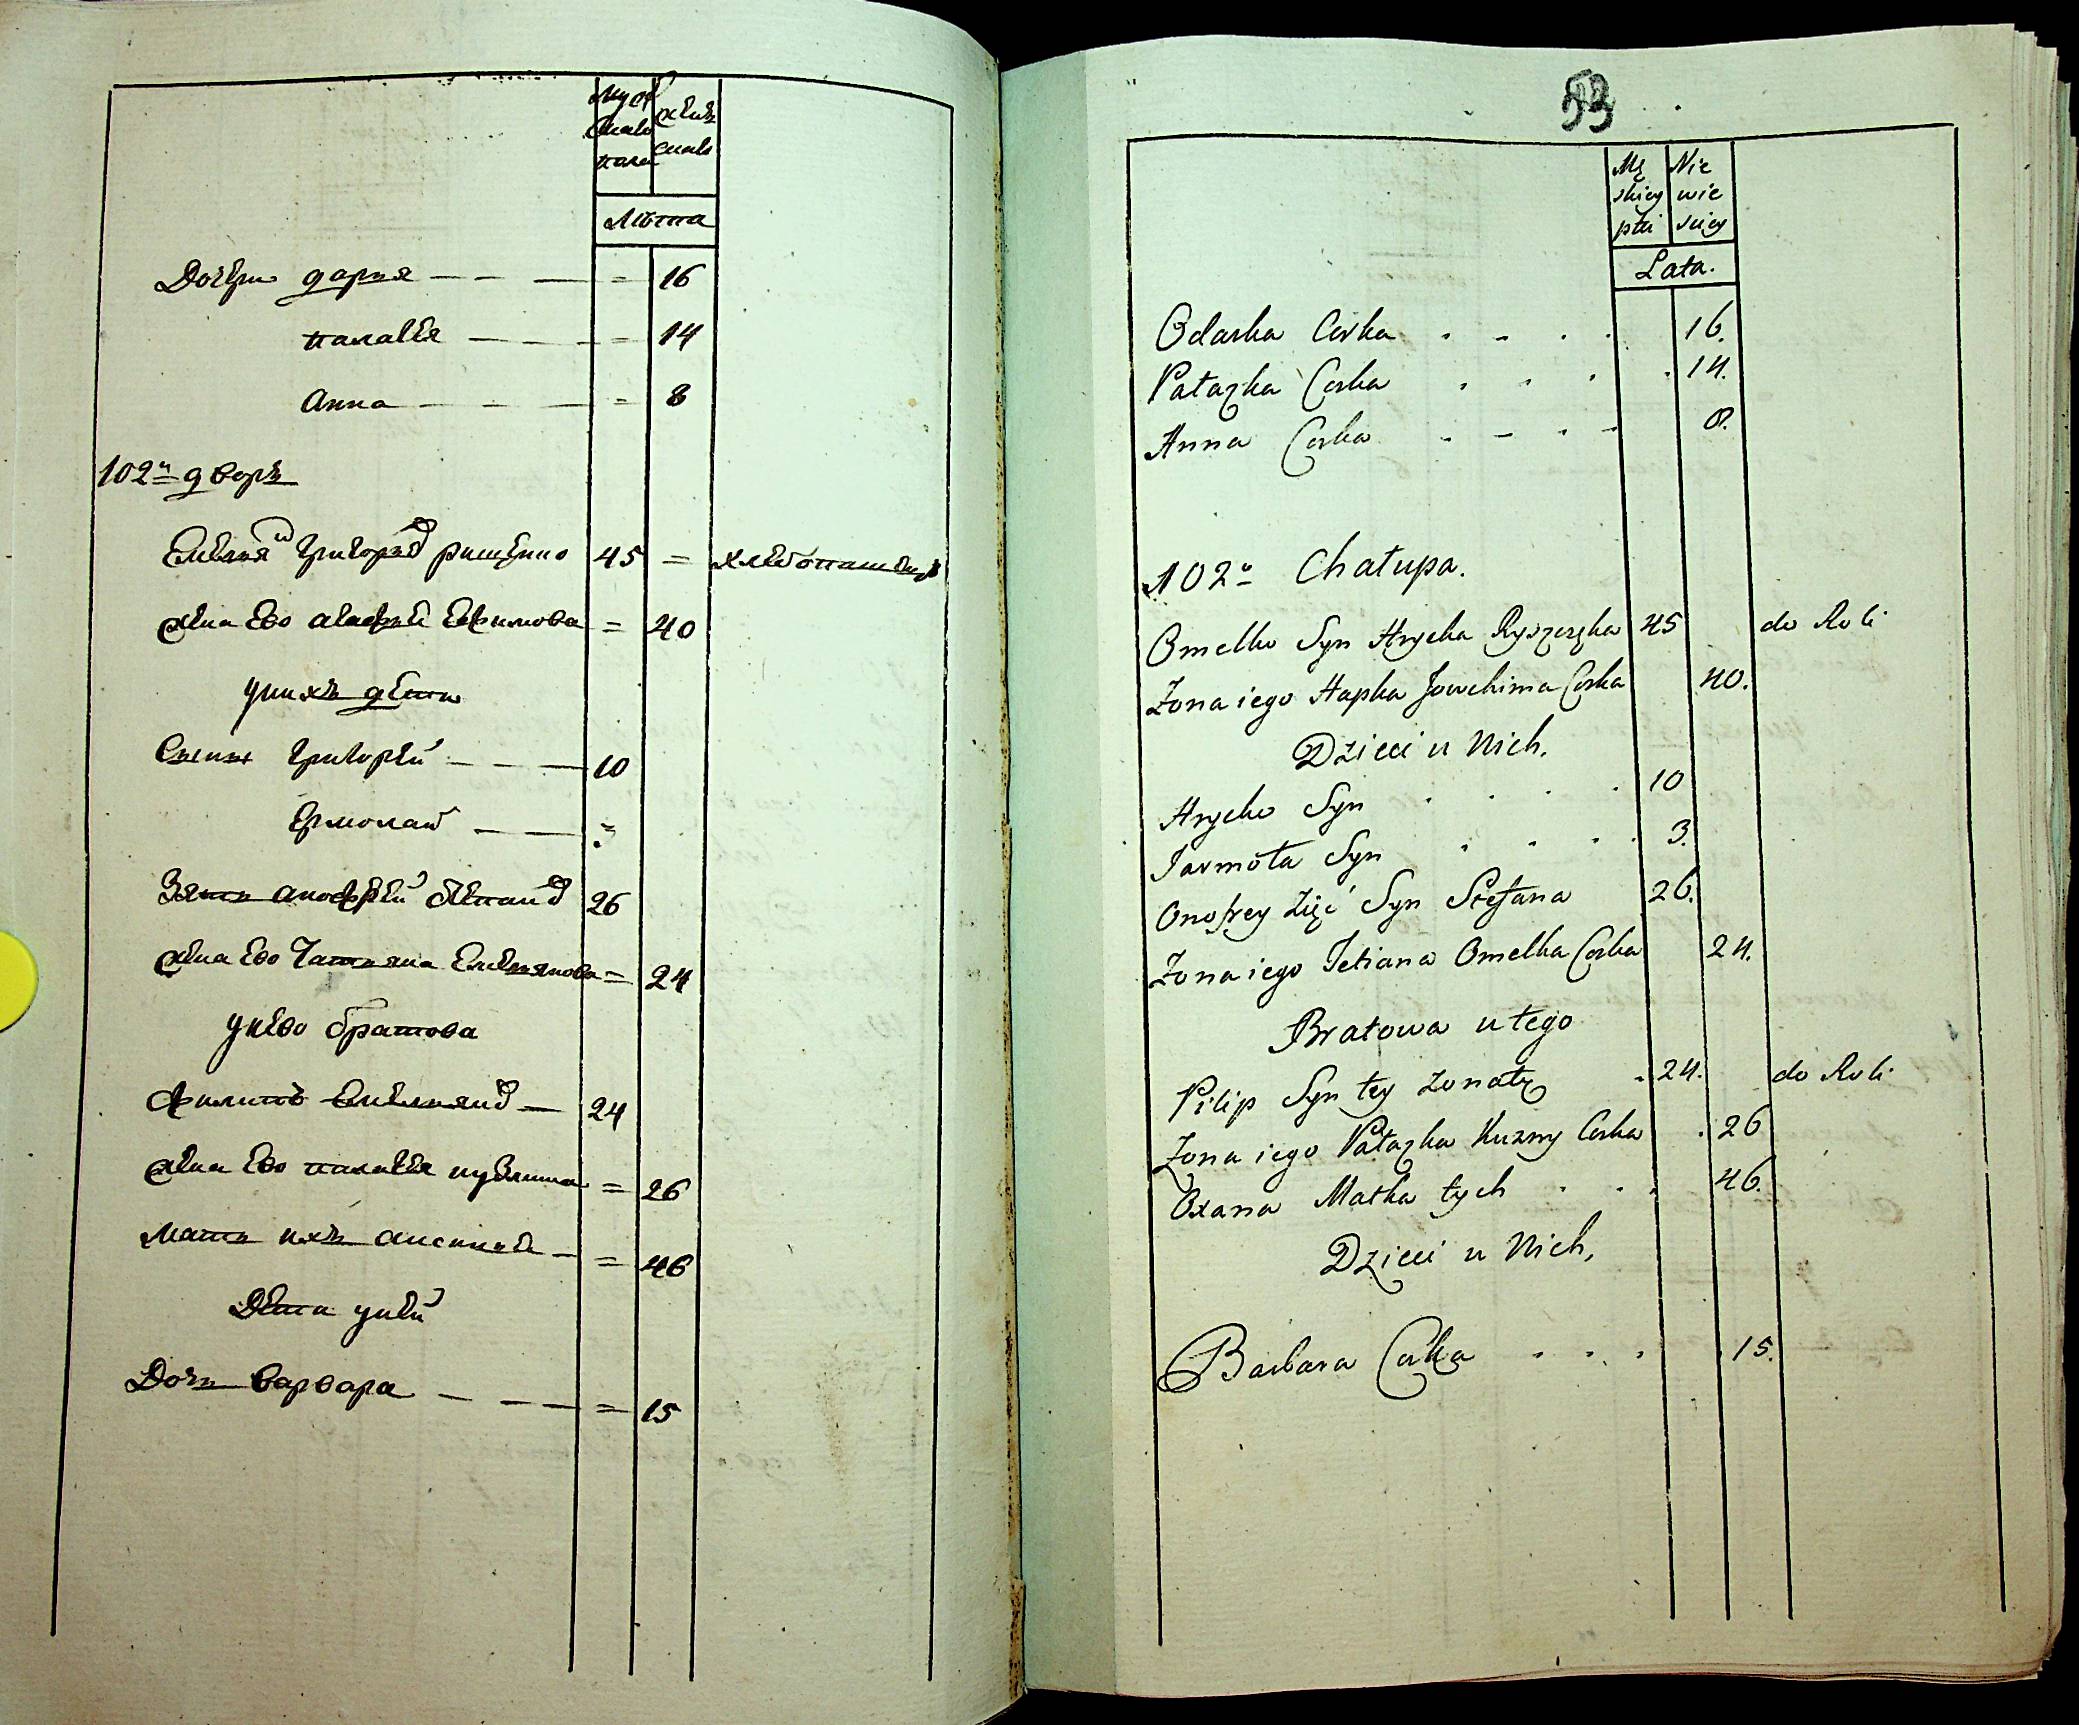 Мужеска пола
женска
Лѣта
Дочери Дарья 16
палагѣя 14
Анна 8
102й дворъ
Емельянъ Григорьевъ рищенко 45 = хлебопашецъ
жена Ево Агафья Ефимова = 40
у них дети
Сынъ Григорей 10
Ермолай 3
Зять анофрей Степанов 26
жена Ево Татьяна Емельянова = 24
у нево братова
Филипъ Емельянов 24
жена Ево палагея кузмина = 26
мать ихъ аксинья = 46
Дети у ней
Дочь варвара = 15
53
Mę skiey płci
Nie wie sciey
Lata.
Odarka Corka 16.
Pałazka Corka 14.
Anna Corka 8.
102a Chałupa.
Omelko Syn Hrycka Ryszczka 45 do Roli
Zona iego Hapka Jowchima Corka 40.
Dzieci u Nich.
Hrycko Syn 10
Jarmoła Syn 3.
Onofrey Zięć Syn Stefana 26.
Zona iego Tetiana Omelka Corka 24.
Bratowa u tego
Pilip Syn tey Zonaty 24. do Roli
Zona iego Pałazka Kuzmy Corka 26
Oxana Matka tych 46.
Dzieci u Nich,
Barbara Corka 15.